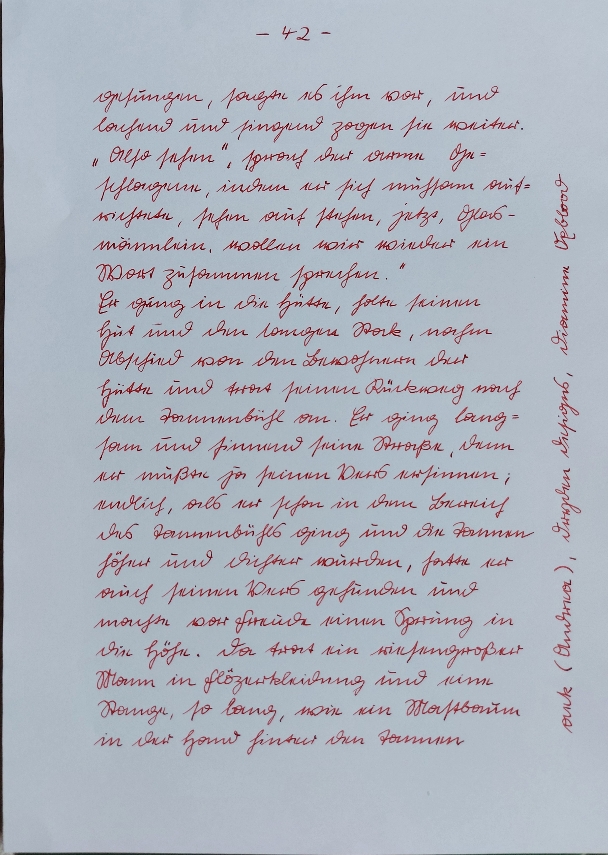 - 42 -
gesungen, sagte es ihm vor, und
lachend und singend zogen sie weiter.
„Also sehen“, sprach der arme Ge=
schlagene, indem er sich mühsam auf=
richtete, sehen auf stehen, jetzt, Glas-
männlein, wollen wir wieder ein
Wort zusammen sprechen.“
Er ging in die Hütte, holte seinen
Hut und den langen Stock, nahm
Abschied von den Bewohnern der
Hütte und trat seinen Rückweg nach
dem Tannenbühl an. Er ging lang=
sam und sinnend seine Straße, denn
er mußte ja seinen Vers ersinnen;
endlich, als er schon in dem Bereich
des Tannenbühls ging und die Tannen
höher und dichter wurden, hatte er
auch seinen Vers gefunden und
machte vor Freude einen Sprung in
die Höhe. Da trat ein riesengroßer
Mann in Flözerkleidung und eine
Stange, so lang, wie ein Mastbaum
in der Hand hinter den Tannen
(Andrea), designs,